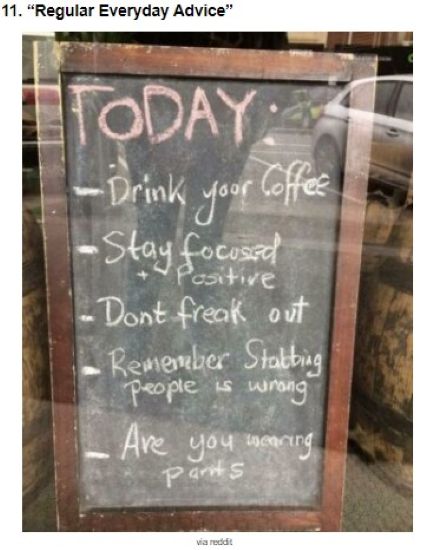 11. “Regular Everyday Advice”
TODAY:
- Drink your Coffee
- Stay focused
+ Positive
- Dont freak out
- Remember Stabbing
people is wrong
- Are you wearing
pants
via reddit